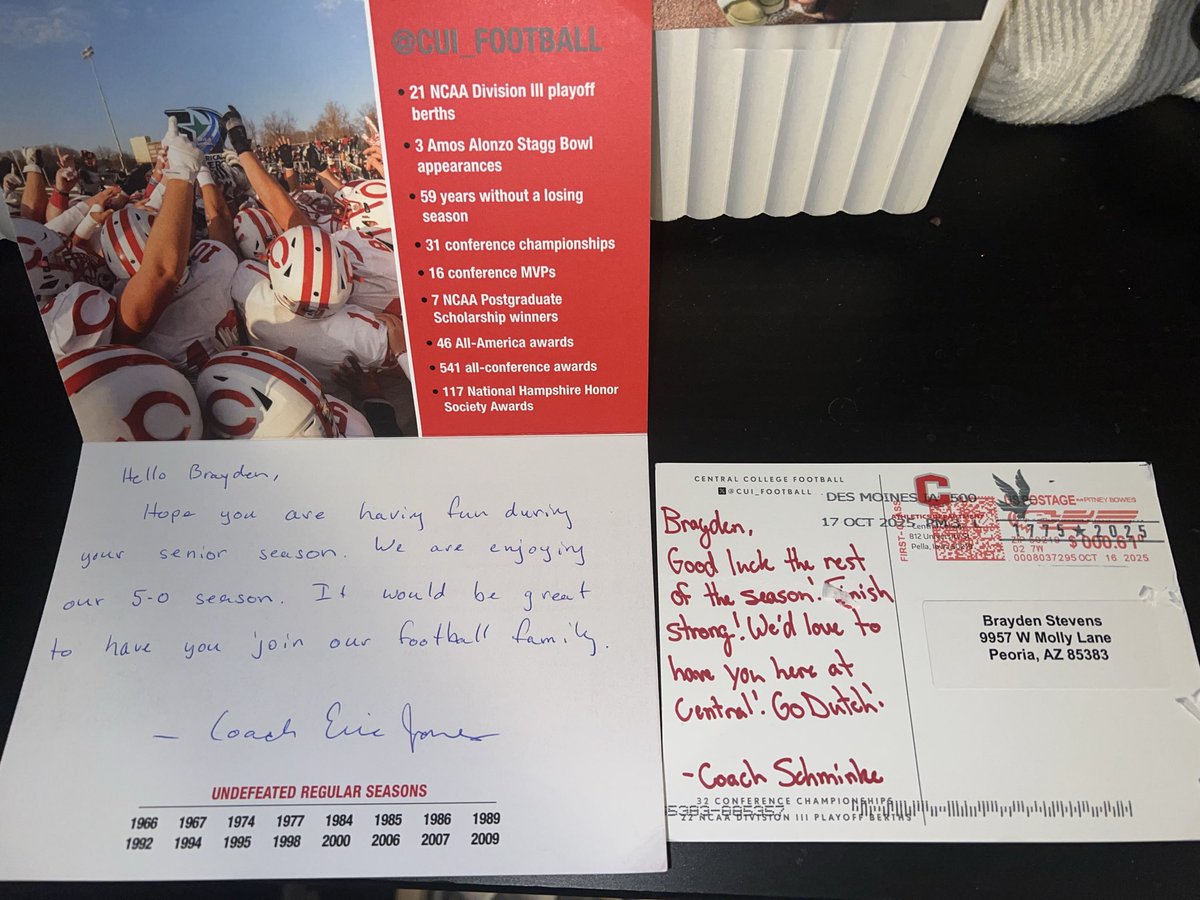 @CUI_FOOTBALL
• 21 NCAA Division III playoff
berths
• 3 Amos Alonzo Stagg Bowl
appearances
• 59 years without a losing
season
• 31 conference championships
• 16 conference MVPs
• 7 NCAA Postgraduate
Scholarship winners
• 46 All-America awards
• 541 all-conference awards
• 117 National Hampshire Honor
Society Awards
Hello Brayden,
Hope you are having fun during
your senior season. We are enjoying
our 5-0 season. It would be great
to have you join our football family.
- Coach Eric Jones
UNDEFEATED REGULAR SEASONS
1966 1967 1974 1977 1984 1985 1986 1989
1992 1994 1995 1998 2000 2006 2007 2009
CENTRAL COLLEGE FOOTBALL
@CUI_FOOTBALL
DES MOINES IA 500
17 OCT 2025 PM 3 L
1775★2025
FIRST-CLASS
US POSTAGE PITNEY BOWES
02 7W $ 000.61
0008037295 OCT 16 2025
Pella,
Brayden,
Good luck the rest
of the season! Finish
strong! We'd love to
have you here at
Central! Go Dutch!
-Coach Schminke
32 CONFERENCE CHAMPIONSHIPS
22 NCAA DIVISION III PLAYOFF BERTHS
Brayden Stevens
9957 W Molly Lane
Peoria, AZ 85383